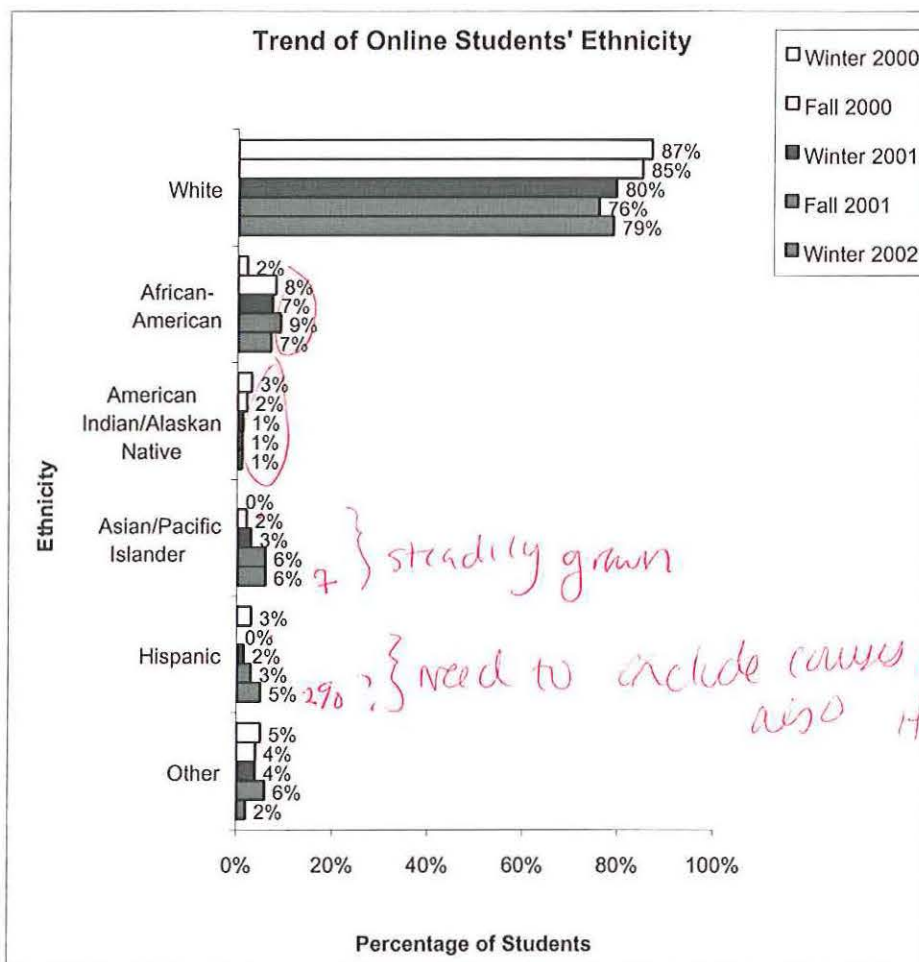 Trend of Online Students' Ethnicity
Winter 2000
Fall 2000
Winter 2001
Fall 2001
Winter 2002
White
87%
85%
80%
76%
79%
African-
American
2%
8%
7%
9%
7%
American
Indian/Alaskan
Native
3%
2%
1%
1%
1%
Asian/Pacific
Islander
0%
2%
3%
6%
6%
7
} steadily grown
Hispanic
3%
0%
2%
3%
5%
2%
? } need to include
also
Other
5%
4%
4%
6%
2%
Ethnicity
0% 20% 40% 60% 80% 100%
Percentage of Students